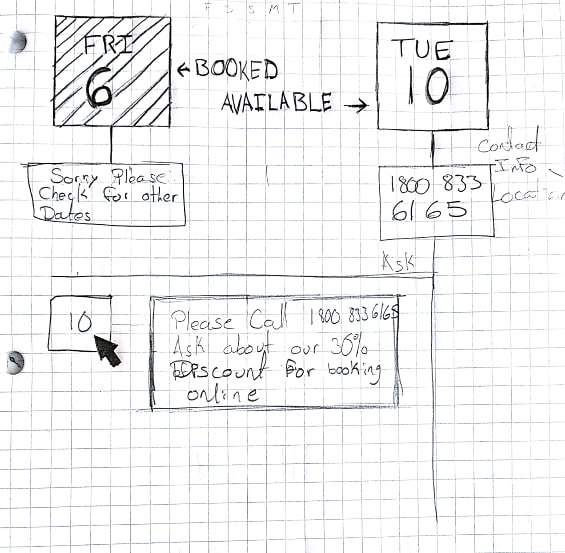 F S S M T
FRI
6
←BOOKED
AVAILABLE →
TUE
10
Sorry Please
Check for other
Dates
1800 833
6165
Contact
Info
Location
Ask
10
Please Call 1800 833 6165
Ask about our 30%
Discount For booking
online